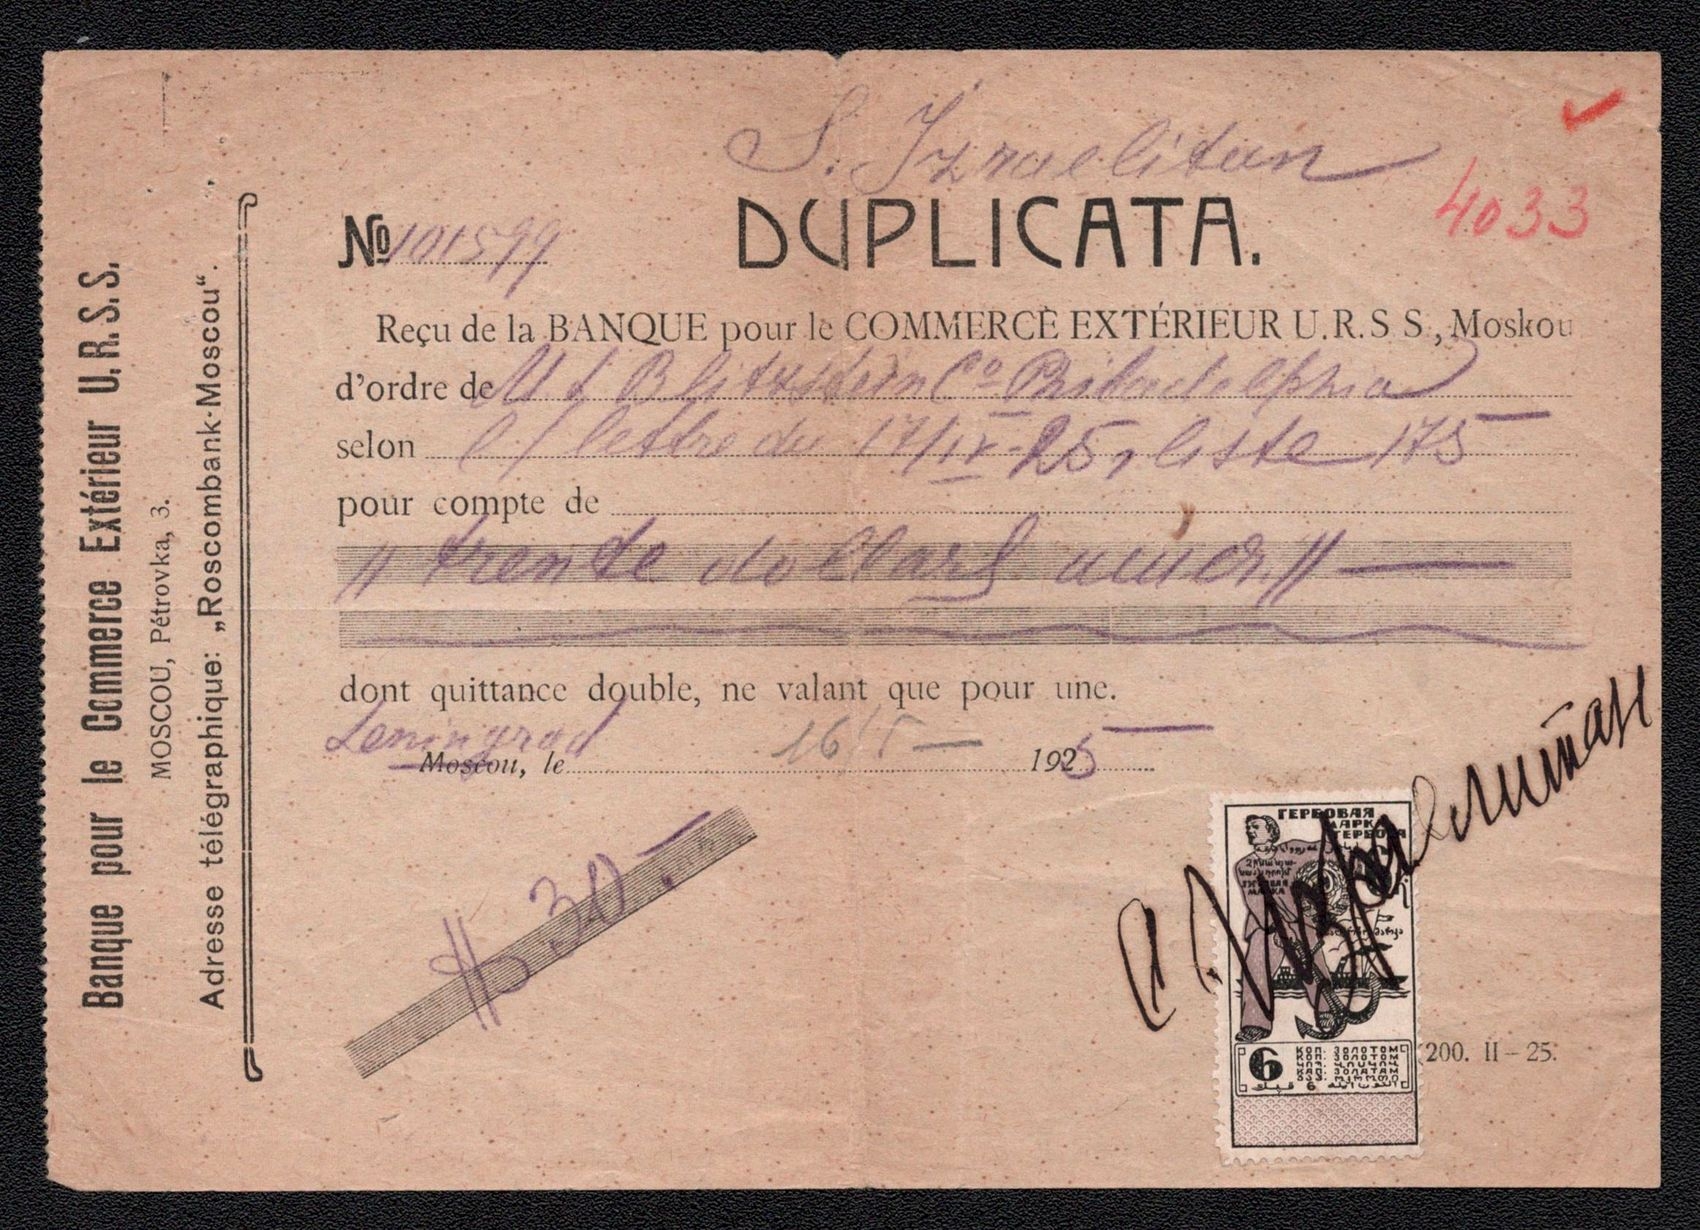 Banque pour le Commerce Extérieur U.R.S.S.
MOSCOU, Pétrovka, 3.
Adresse télégraphique: „Roscombank-Moscou“.
S. Izraelitan
4033
DUPLICATA.
No 101599
Reçu de la BANQUE pour le COMMERCE EXTÉRIEUR U.R.S S, Moskou
d'ordre de M. L. Blitzstein Co Philadelphia
selon l/lettre du 17/IV-25, liste 175
pour compte de
// trente dollars amer. //
dont quittance double, ne valant que pour une.
Leningrad
Moscou, le 16/V 1925
$ 30.-
ГЕРБОВАЯ
МАРКА
6
КОП. ЗОЛОТОМ
200. II – 25.